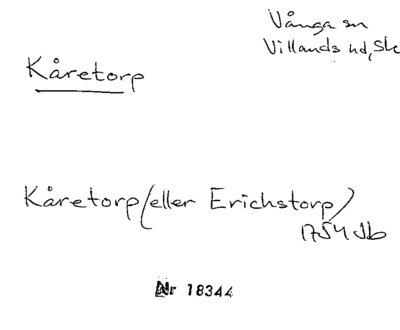 Vånga sn
Villands hd, Sk
Kåretorp
Kåretorp (eller Erichstorp)
1754 Jb
Nr 18344